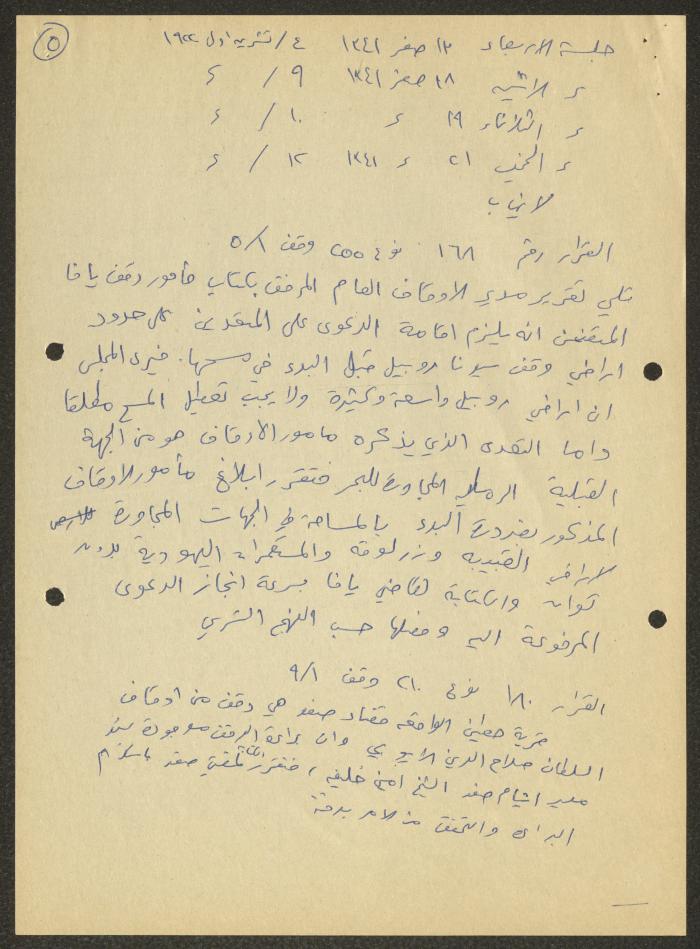 ٥
جلسة الاربعاء ١٣ صفر ١٣٤١ ٤/تشرين اول ١٩٢٢
ء الاثنين ١٨ صفر ١٣٤١ ٩/ ء
ء الثلاثاء ١٩ ء ١٠/ ء
ء الخميس ٢١ ء ١٣٤١ ١٢/ ء
القرار رقم ١٦٨ نوع ٥٥ وقف ٥/١
تلي تقرير مدير الاوقاف العام المرفق بكتاب مأمور وقف يافا
المتضمن انه يلزم اقامة الدعوى على المتعدين على حدود
اراضي وقف سيدنا روبيل قبل البدء في مسحها. فيرى المجلس
ان اراضي روبيل واسعة وكثيرة ولا يجب تعطيل المسح مطلقا
واما التعدى الذي يذكره مامور الاوقاف هو من الجهة
القبلية الرملية المجاورة للبحر فتقرر ابلاغ مأمور الاوقاف
المذكور بضرورة البدء بالمساحة في الجهات المجاورة
لاراضي القبيبه وزرنوقه والمستعمرات اليهودية بدون
توان والكتابة لقاضي يافا بسرعة انجاز الدعوى
المرفوعة اليه وفصلها حسب النهج الشرعي
القرار ١٨٠ نوع ٢١ وقف ٩/١
قرية حطين الواقعه بقضاء صفد هي وقف من اوقاف
السلطان صلاح الدين الايوبي وان براءة الوقف موجودة بيد
مدير ايتام صفد الشيخ امين خليفه، فتقرر كتابة لمفتي صفد باستلام
البراءه والتحقق من الامر بدقة